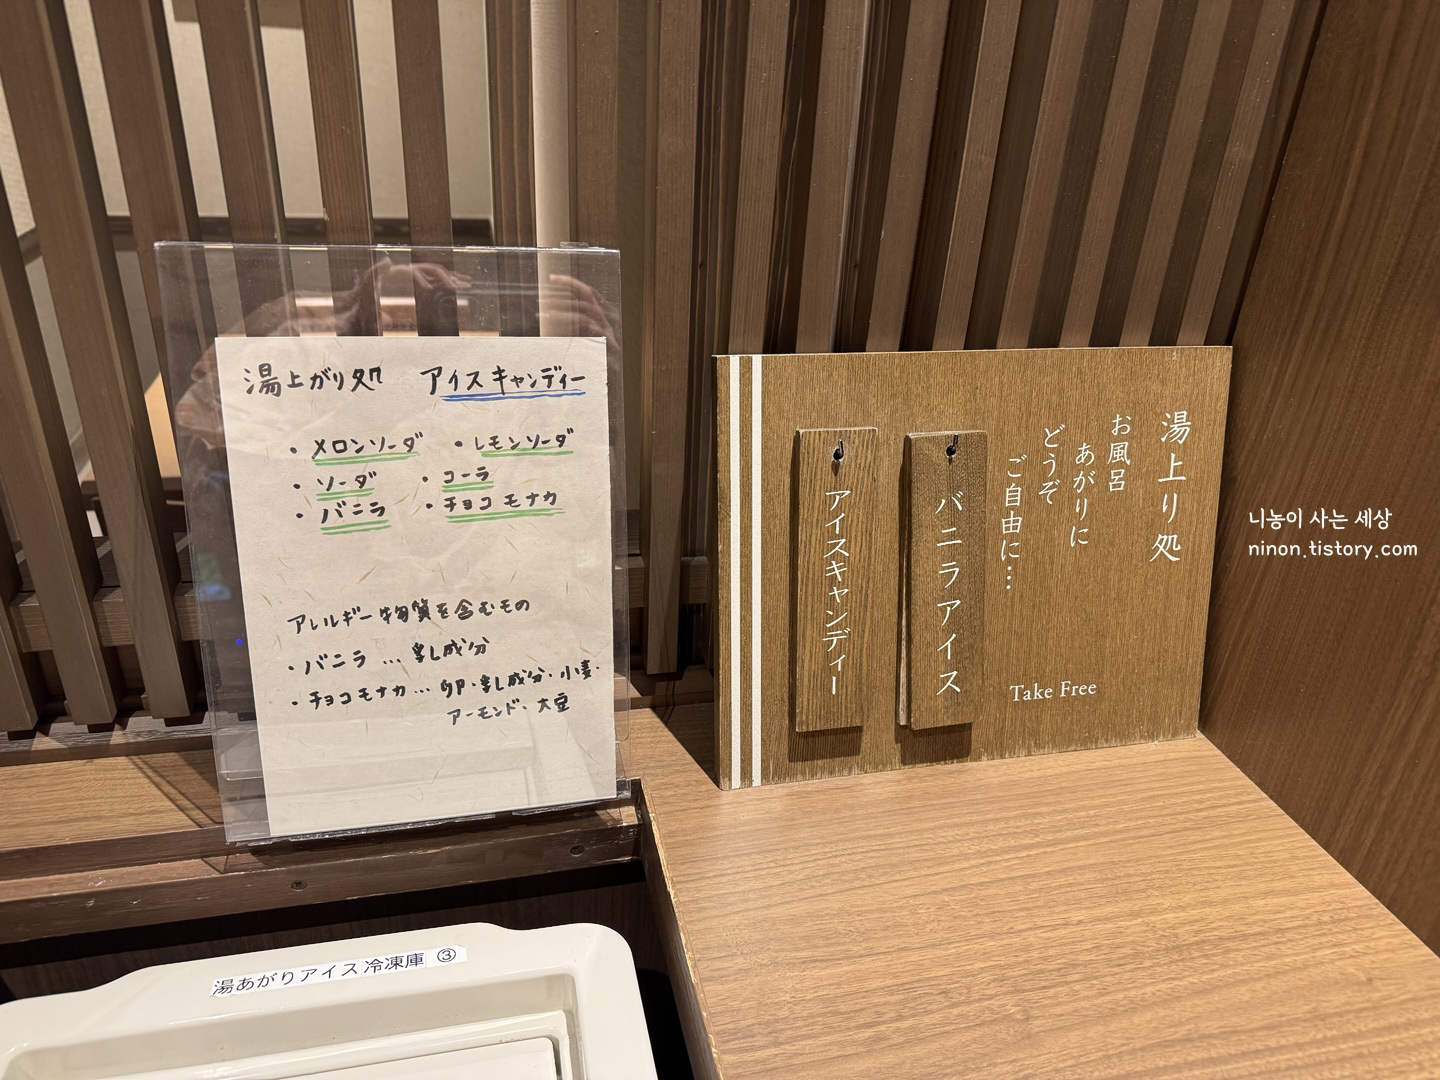 湯上がり処 アイスキャンディー
・メロンソーダ ・レモンソーダ
・ソーダ ・コーラ
・バニラ ・チョコモナカ
アレルギー物質を含むもの
・バニラ … 乳成分
・チョコモナカ … 卵・乳成分・小麦・
アーモンド・大豆
湯上り処
お風呂
あがりに
どうぞ
ご自由に…
バニラアイス
アイスキャンディー
Take Free
湯あがりアイス冷凍庫 ③
니농이 사는 세상
ninon.tistory.com